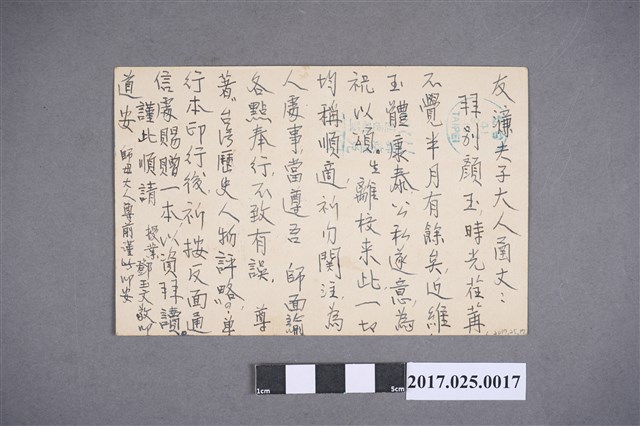 友濂夫子大人函丈:
拜別顏玉,時光荏苒
不覺半月有餘矣近維
玉體康泰公私遂意,為
祝以頌。生離校来此一切
均稱順適,祈勿関注,為
人處事當遵吾 師面諭
各點奉行,不致有誤。尊
著「台湾歷史人物評略」單
行本印行後,祈按反面通
信處賜贈一本,以資拜讀。
謹此順請
道安 師母大人尊前謹此叩安
授業 鄭玉文敬叩
TAIPEI
1cm
5cm
2017.025.0017